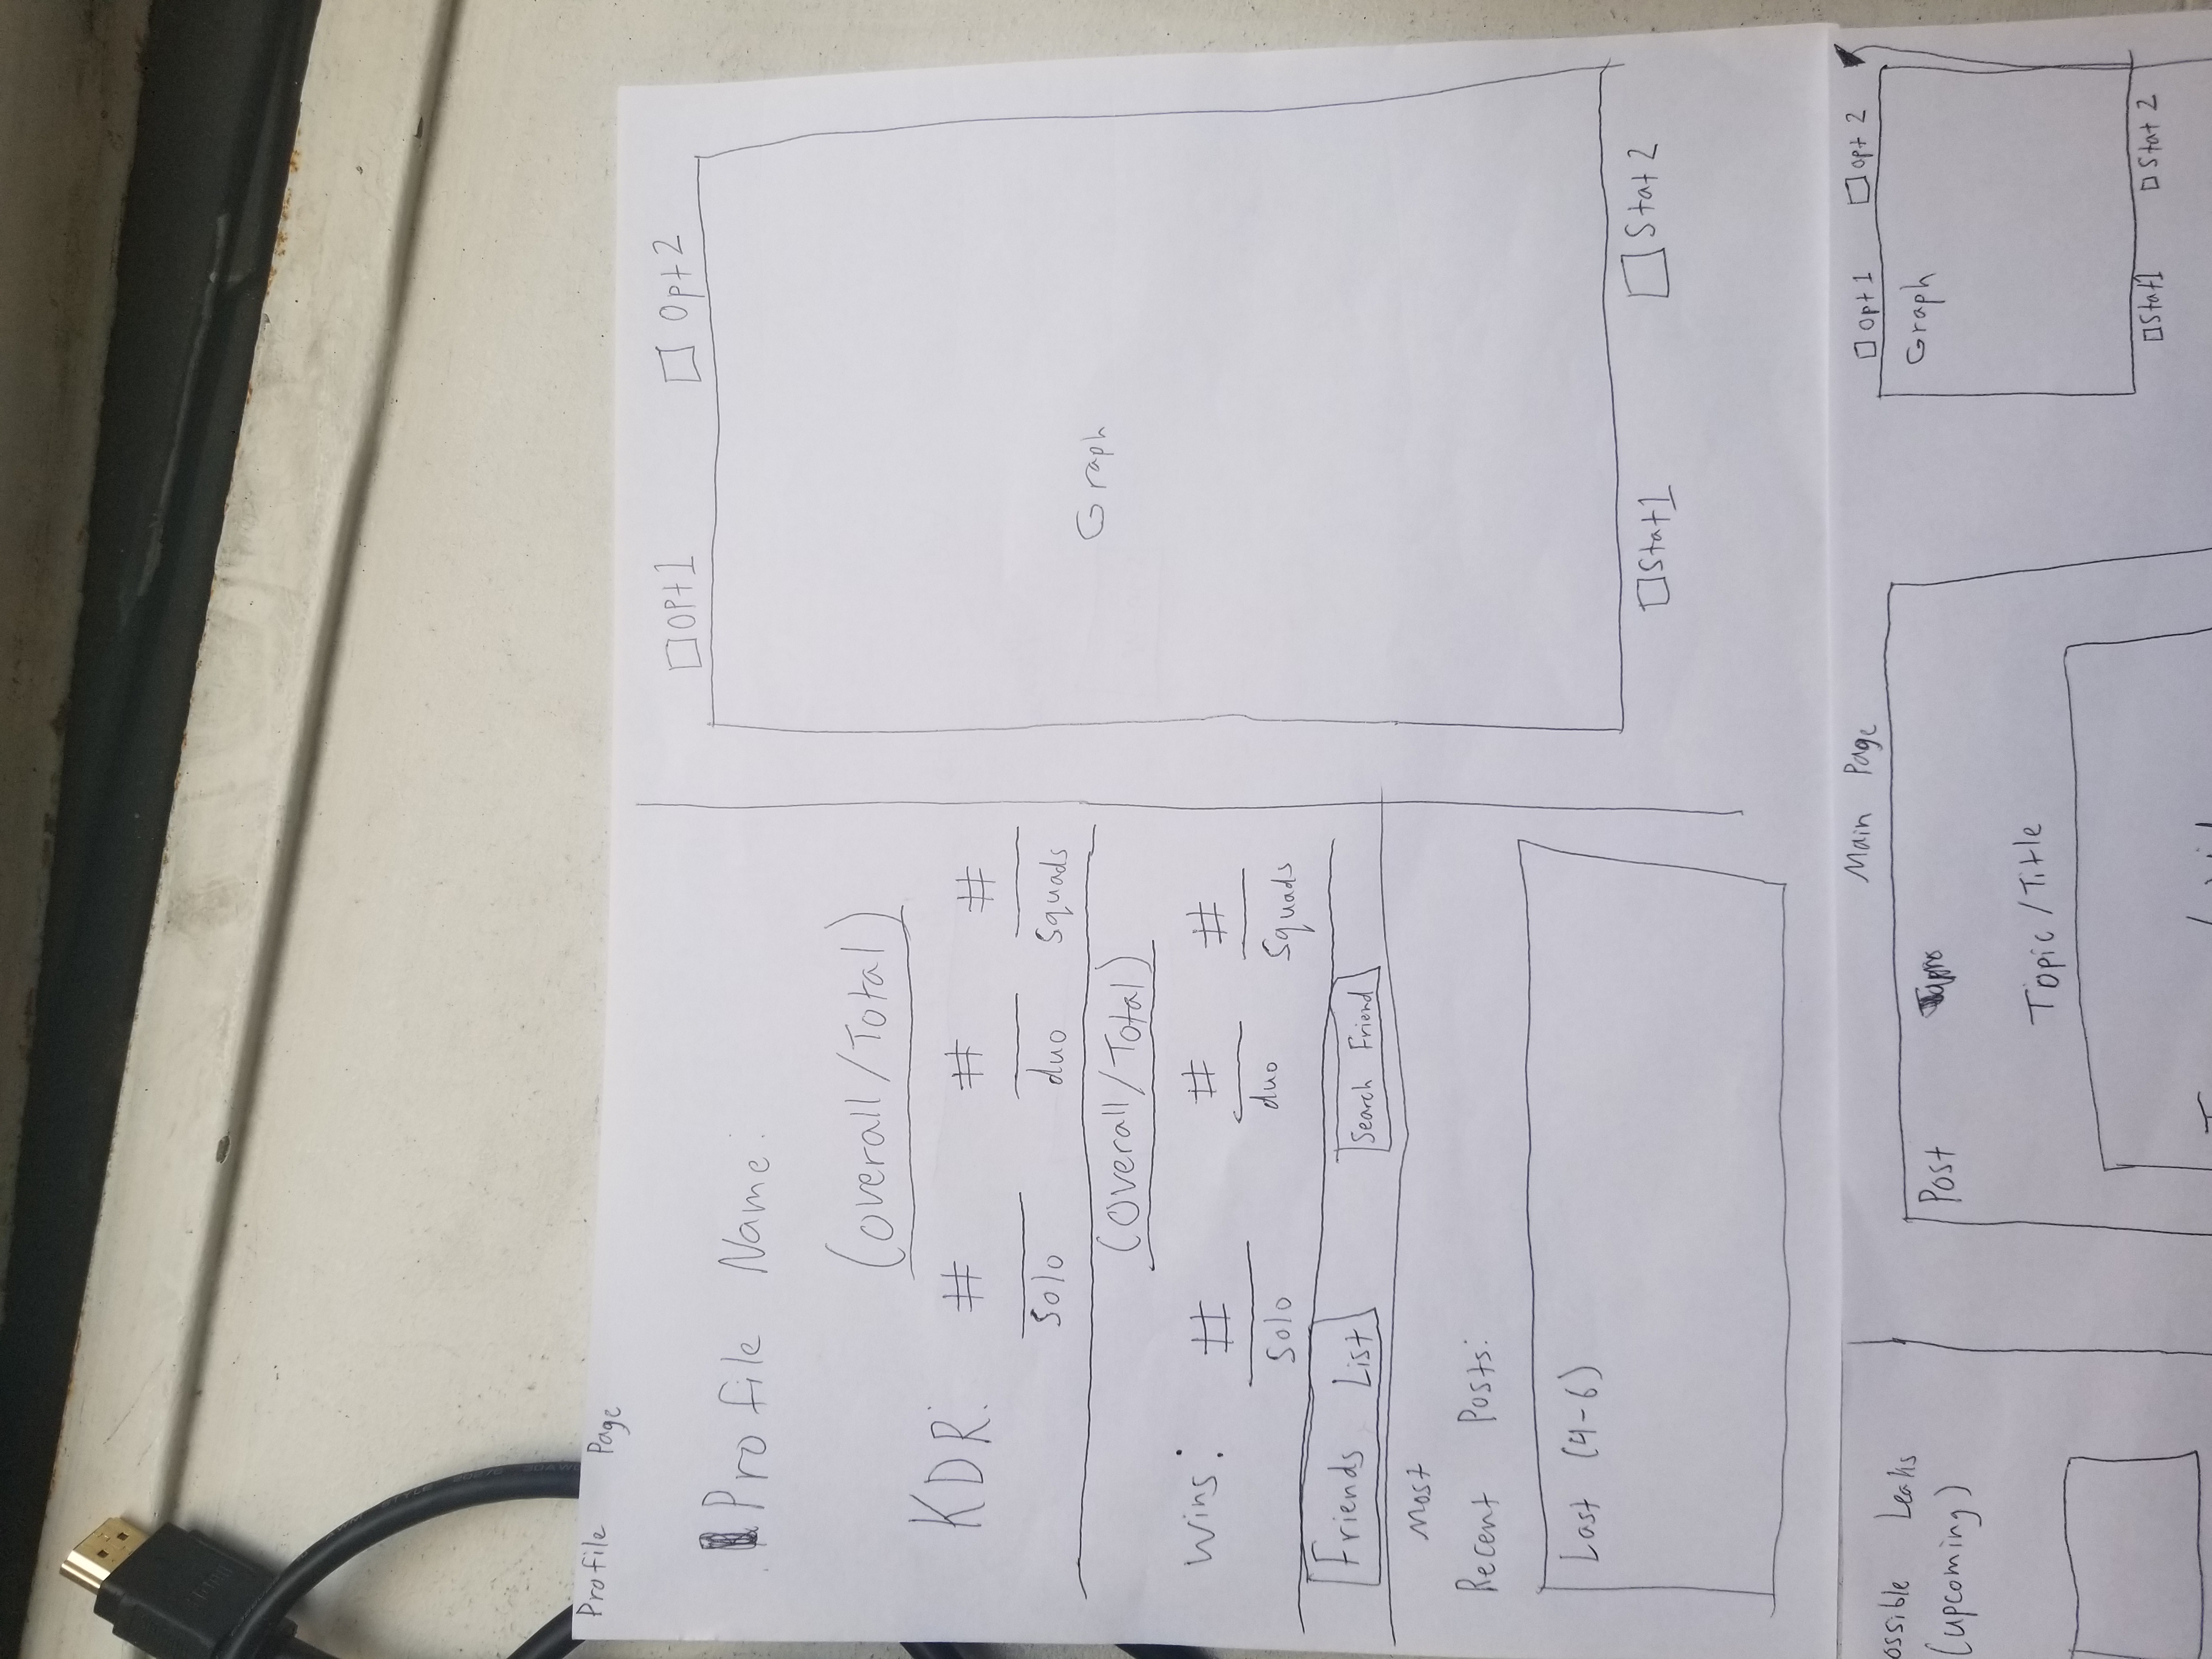 Profile Page
Profile Name:
(Overall/Total)
KDR: # # #
Solo duo Squads
(Overall/Total)
Wins: # # #
Solo duo Squads
Friends List Search Friend
Most
Recent Posts:
Last (4-6)
Opt1 Opt2
Graph
Stat1 Stat2
Main Page
ossible Leaks
(upcoming)
Post
Topic/Title
Opt1 Opt 2
Graph
Stat1 Stat 2